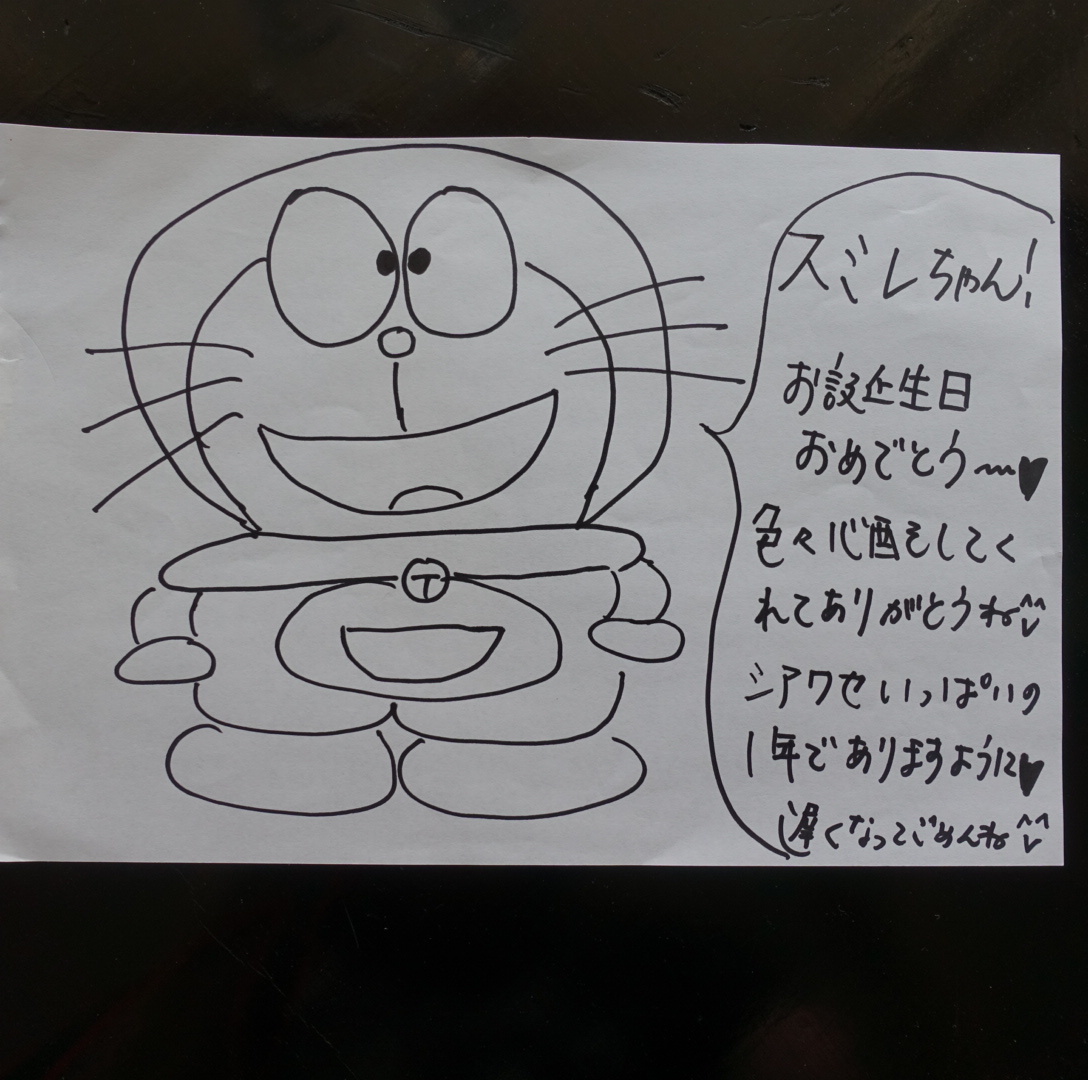 スミレちゃん!
お誕生日
おめでとう〜♥
色々心配をしてく
れてありがとうね^^
シアワセいっぱいの
1年でありますように♥
遅くなってごめんね^^
T